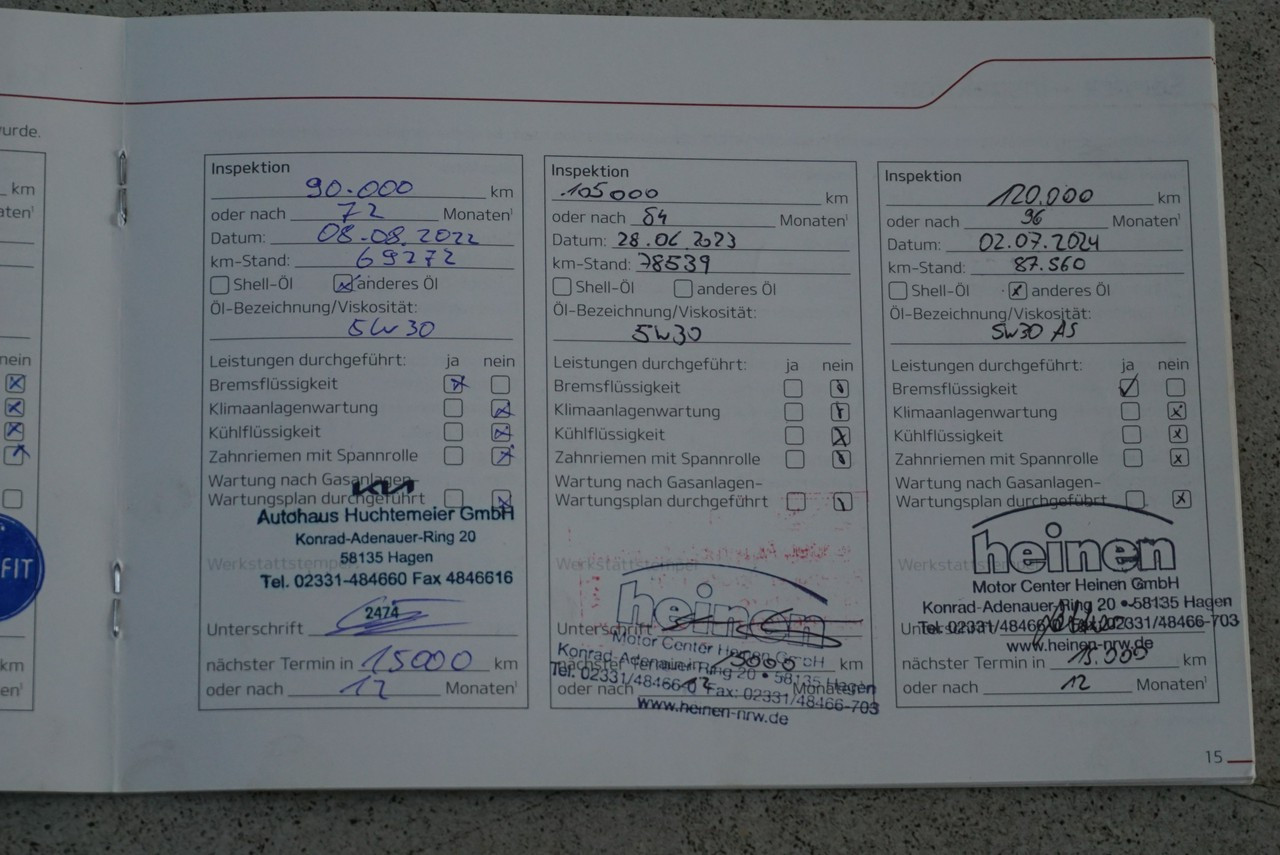 urde.
km
aten¹
nein
FIT
km
en¹
Inspektion
90.000 km
oder nach 72 Monaten¹
Datum: 08.08.2022
km-Stand: 69272
Shell-Öl anderes Öl
Öl-Bezeichnung/Viskosität:
5W30
Leistungen durchgeführt: ja nein
Bremsflüssigkeit
Klimaanlagenwartung
Kühlflüssigkeit
Zahnriemen mit Spannrolle
Wartung nach Gasanlagen-
Wartungsplan durchgeführt
KIA
Autohaus Huchtemeier GmbH
Konrad-Adenauer-Ring 20
58135 Hagen
Werkstattstempel
Tel. 02331-484660 Fax 4846616
2474
Unterschrift
nächster Termin in 15000 km
oder nach 12 Monaten¹
Inspektion
105000 km
oder nach 84 Monaten¹
Datum: 28.06.2023
km-Stand: 78539
Shell-Öl anderes Öl
Öl-Bezeichnung/Viskosität:
5W30
Leistungen durchgeführt: ja nein
Bremsflüssigkeit
Klimaanlagenwartung
Kühlflüssigkeit
Zahnriemen mit Spannrolle
Wartung nach Gasanlagen-
Wartungsplan durchgeführt
Werkstattstempel
heinen
Unterschrift
Motor Center Heinen GmbH
Konrad-Adenauer Ring 20 • 58135 Hagen
nächster Termin in 15000 km
Tel. 02331/48466-0 Fax: 02331/48466-703
oder nach 12 Monaten¹
www.heinen-nrw.de
Inspektion
120.000 km
oder nach 96 Monaten¹
Datum: 02.07.2024
km-Stand: 87.560
Shell-Öl anderes Öl
Öl-Bezeichnung/Viskosität:
5W30 AS
Leistungen durchgeführt: ja nein
Bremsflüssigkeit
Klimaanlagenwartung
Kühlflüssigkeit
Zahnriemen mit Spannrolle
Wartung nach Gasanlagen-
Wartungsplan durchgeführt
heinen
Werkstattstempel
Motor Center Heinen GmbH
Konrad-Adenauer-Ring 20 • 58135 Hagen
Tel. 02331/48466-0 02331/48466-703
Unterschrift
www.heinen-nrw.de
nächster Termin in 15.000 km
oder nach 12 Monaten¹
15